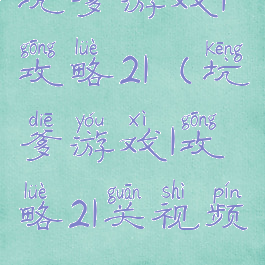 坑爹游戏1
gōng lüè kēng
攻略21（坑
diē yóu xì gōng
爹游戏1攻
lüè guān shì pín
略21关视频